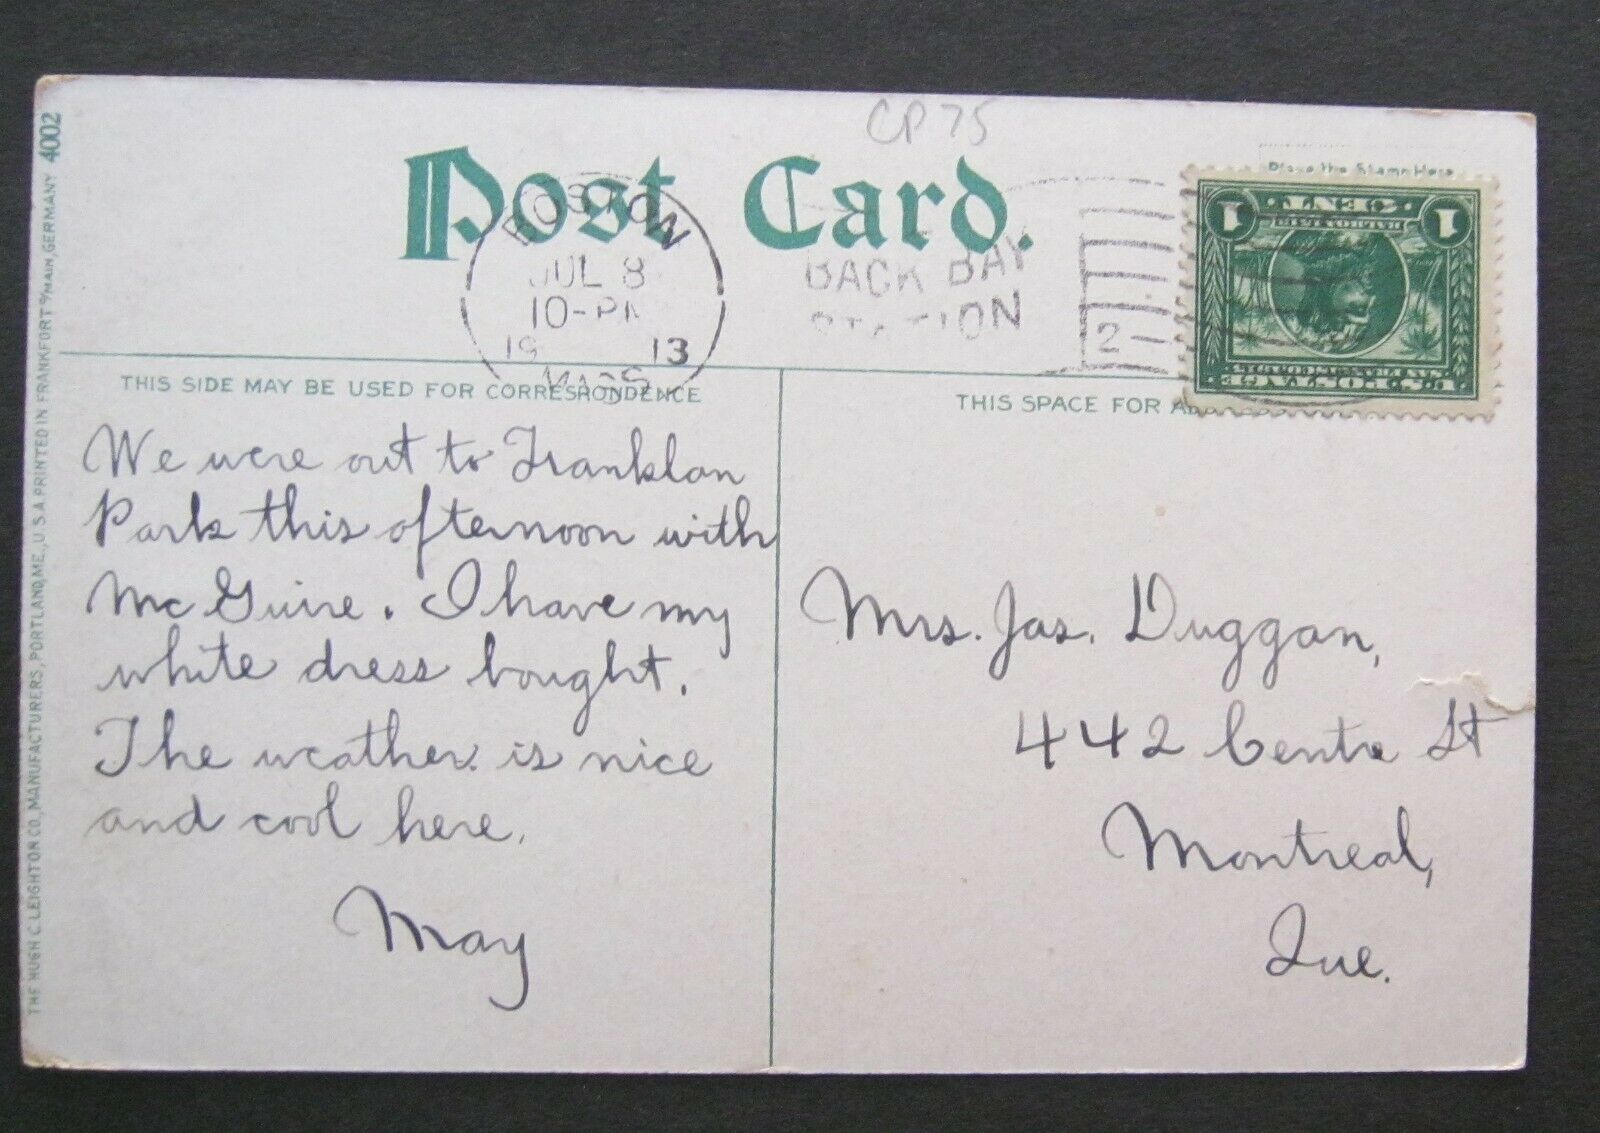 CP 75
Post Card.
Place the Stamp Here
BOSTON
JUL 8
10-PM
19 13
MASS.
BACK BAY
STATION
2
1 CENT 1
U.S. POSTAGE
THIS SIDE MAY BE USED FOR CORRESPONDENCE
THIS SPACE FOR
We were out to Franklan
Park this afternoon with
McGuire. I have my
white dress bought.
The weather is nice
and cool here.
May
Mrs. Jas. Duggan,
442 Centre St
Montreal,
Que.
THE HUGH C. LEIGHTON CO., MANUFACTURERS, PORTLAND, ME., U.S.A. PRINTED IN FRANKFORT o/MAIN, GERMANY 4002